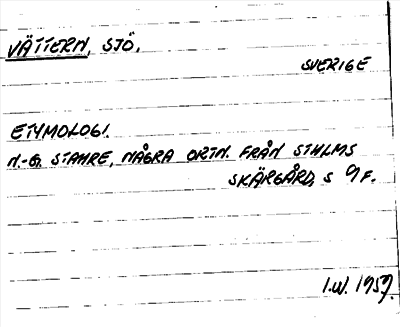 VÄTTERN, SJÖ.
SVERIGE
ETYMOLOGI.
N.-G. STAHRE, NÅGRA ORTN. FRÅN STHLMS
SKÄRGÅRD, S 9 F.
I.W. 1959.